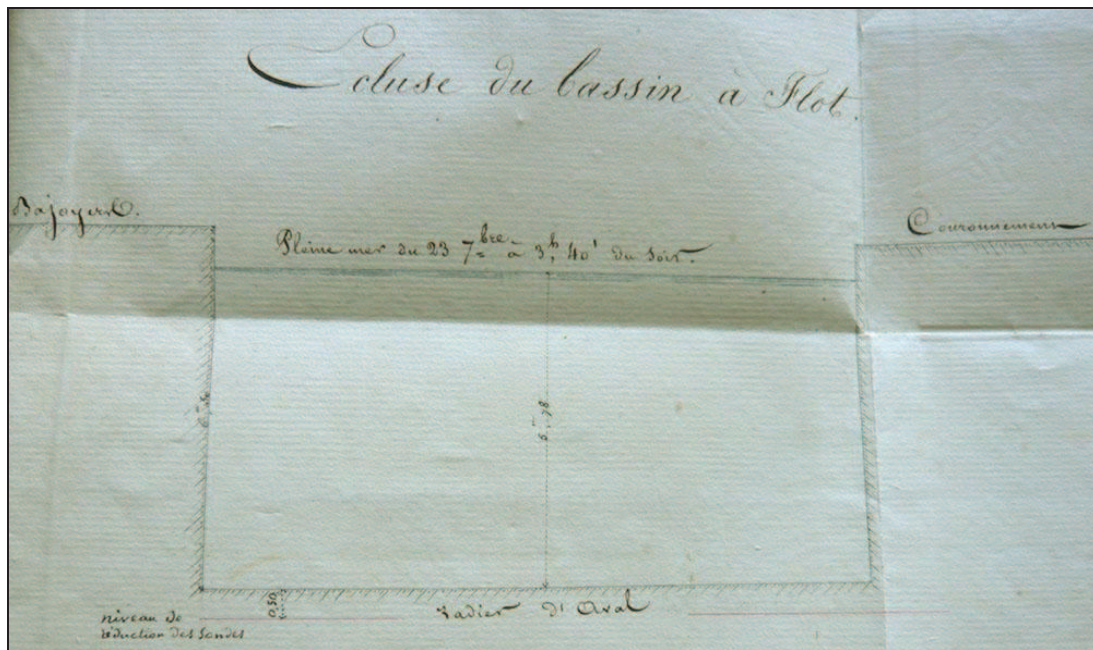 Ecluse du bassin à Flot.
Bajoyers.
Couronnement
Pleine mer du 23 7bre à 3h 40' du Soir.
78
0,50
radier d'Aval
niveau de
réduction des Sondes